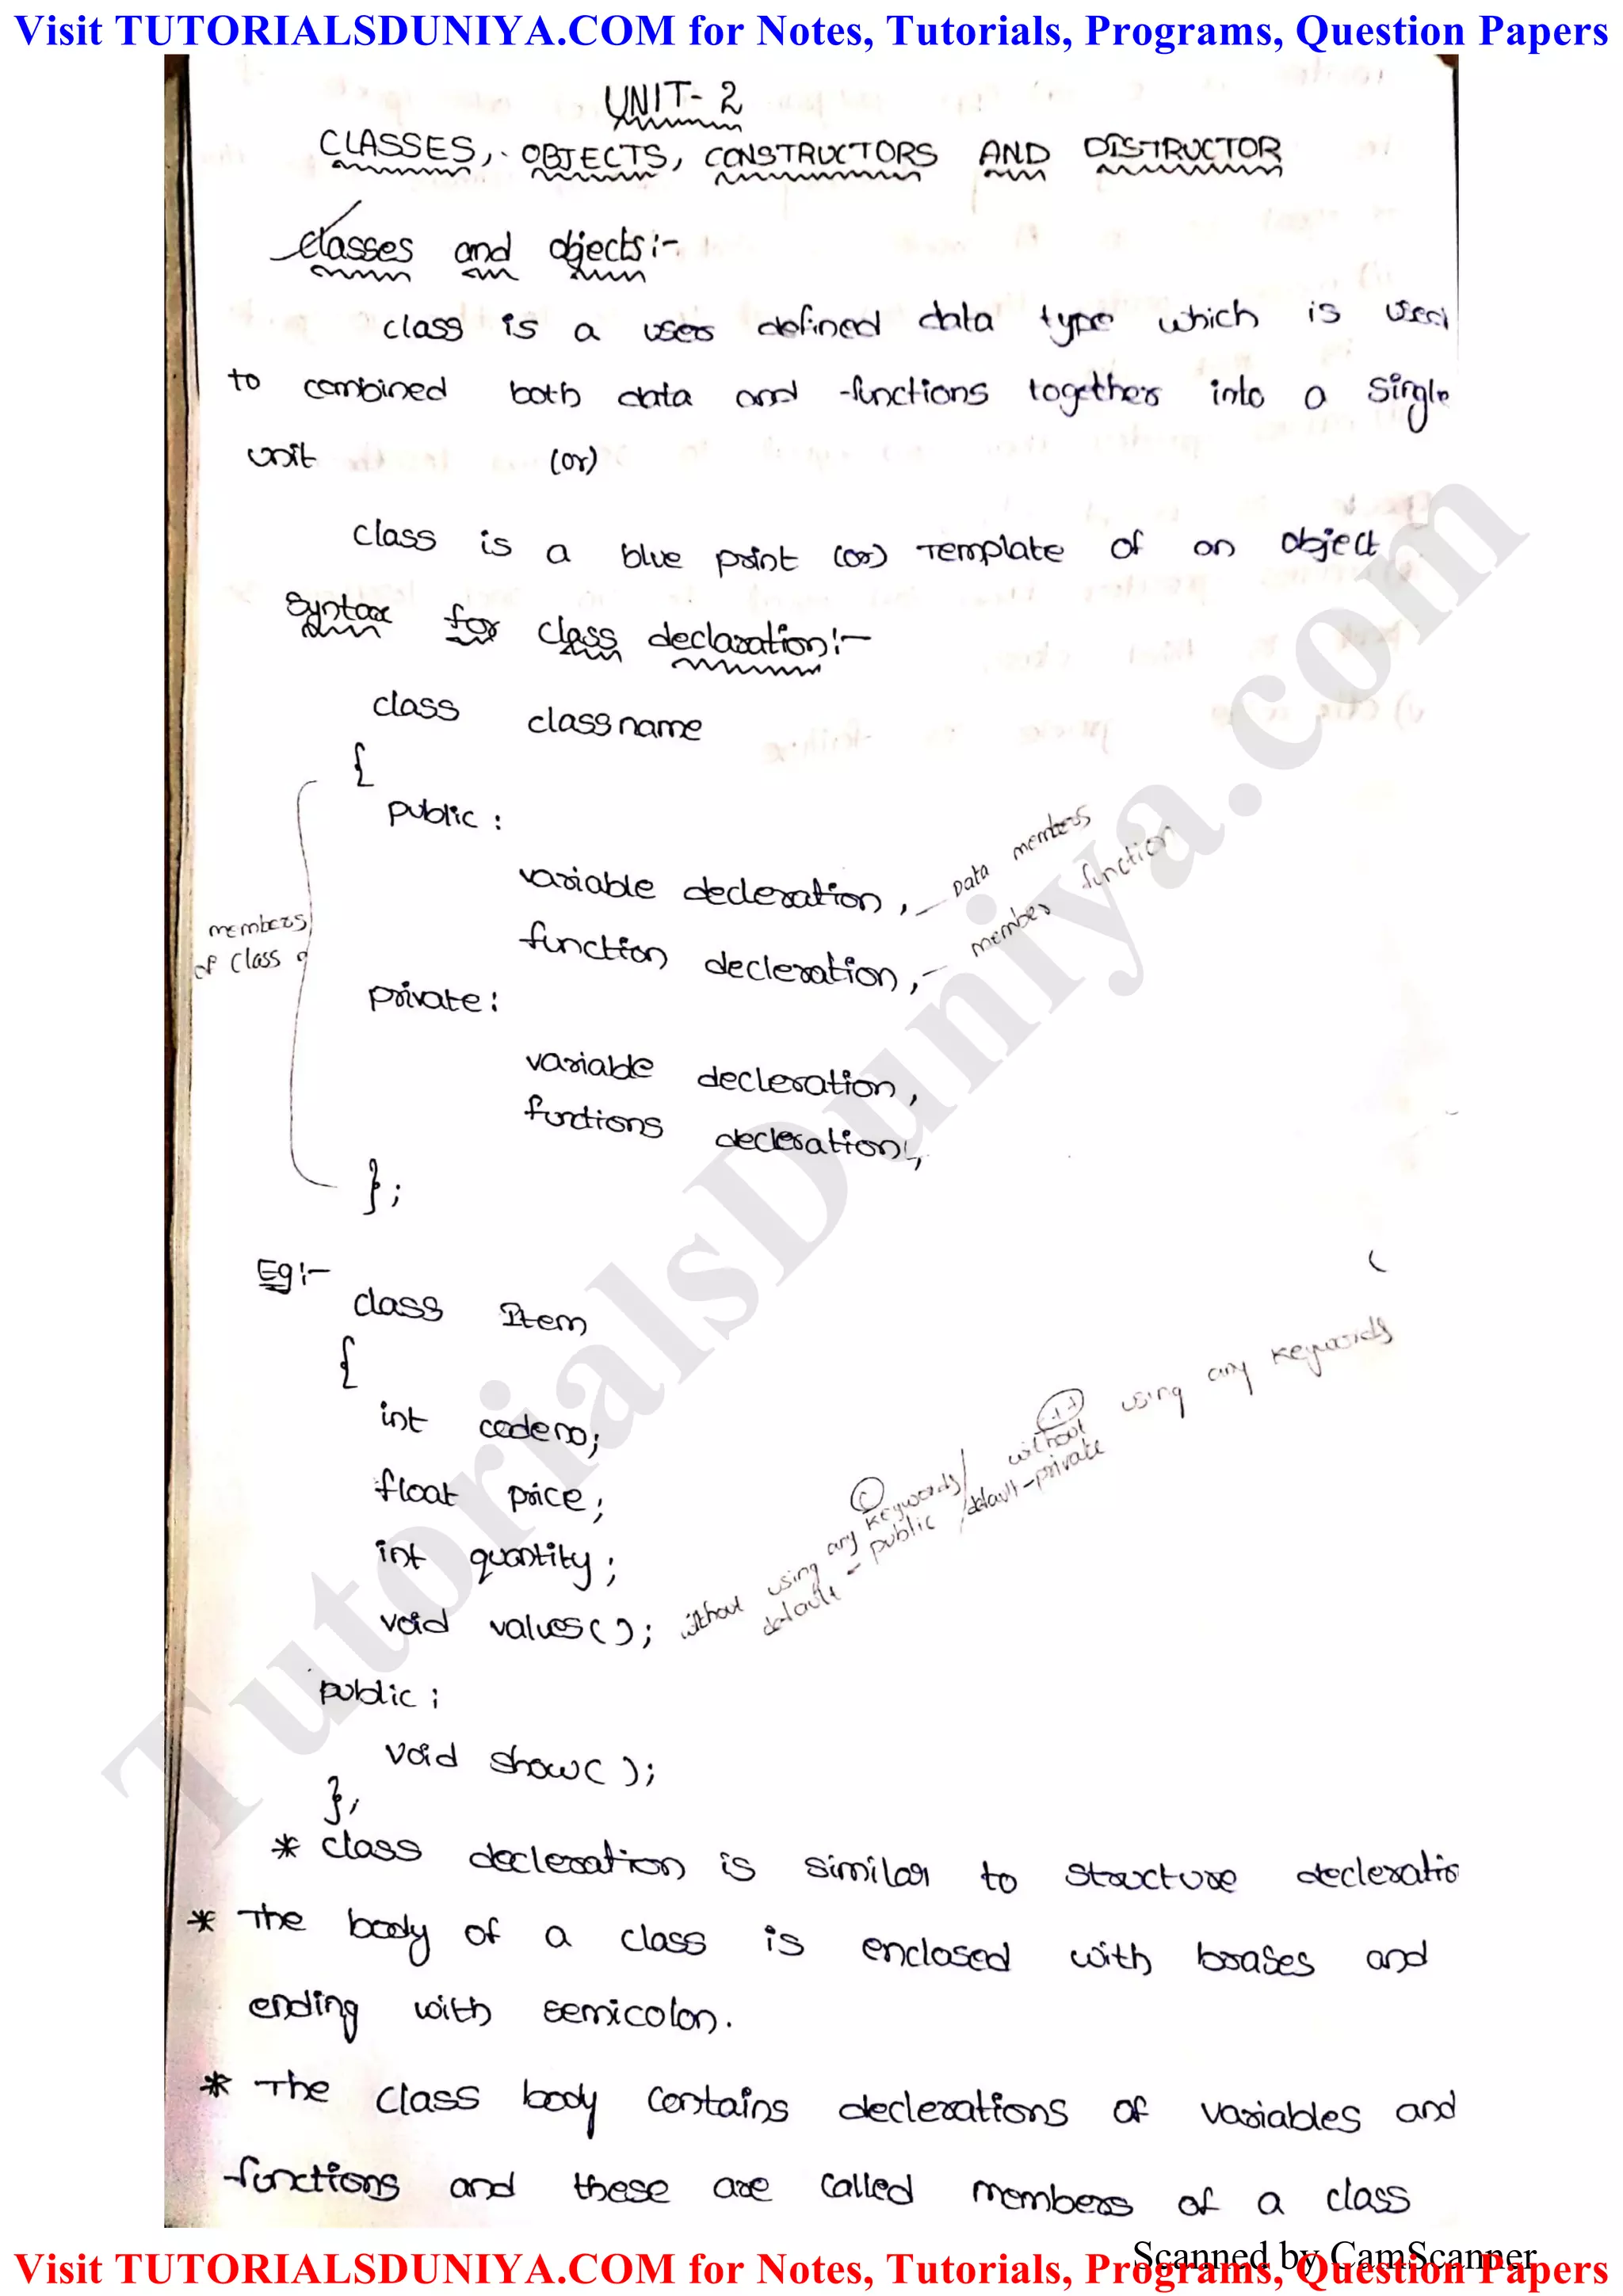 Visit TUTORIALSDUNIYA.COM for Notes, Tutorials, Programs, Question Papers
UNIT- 2
CLASSES, OBJECTS, CONSTRUCTORS AND DISTRUCTOR
classes and objects:-
class is a user defined data type which is used
to combined both data and functions together into a single
unit (or)
class is a blue print (or) Template of an object
Syntax for class declaration:-
class classname
{
public :
variable decleration, Data members
function decleration, member function
members
of class
private:
variable decleration,
functions decleration;
};
Eg:-
class Item
{
int codeno;
float price;
int quantity;
void values();
without using any keywords / without using any keywords
default - public / default-private
public :
void show( );
};
* class decleration is similar to structure decleratio
* The body of a class is enclosed with brases and
ending with semicolon.
* The class body contains declerations of variables and
functions and these are called members of a class
TutorialsDuniya.com
Scanned by CamScanner
Visit TUTORIALSDUNIYA.COM for Notes, Tutorials, Programs, Question Papers